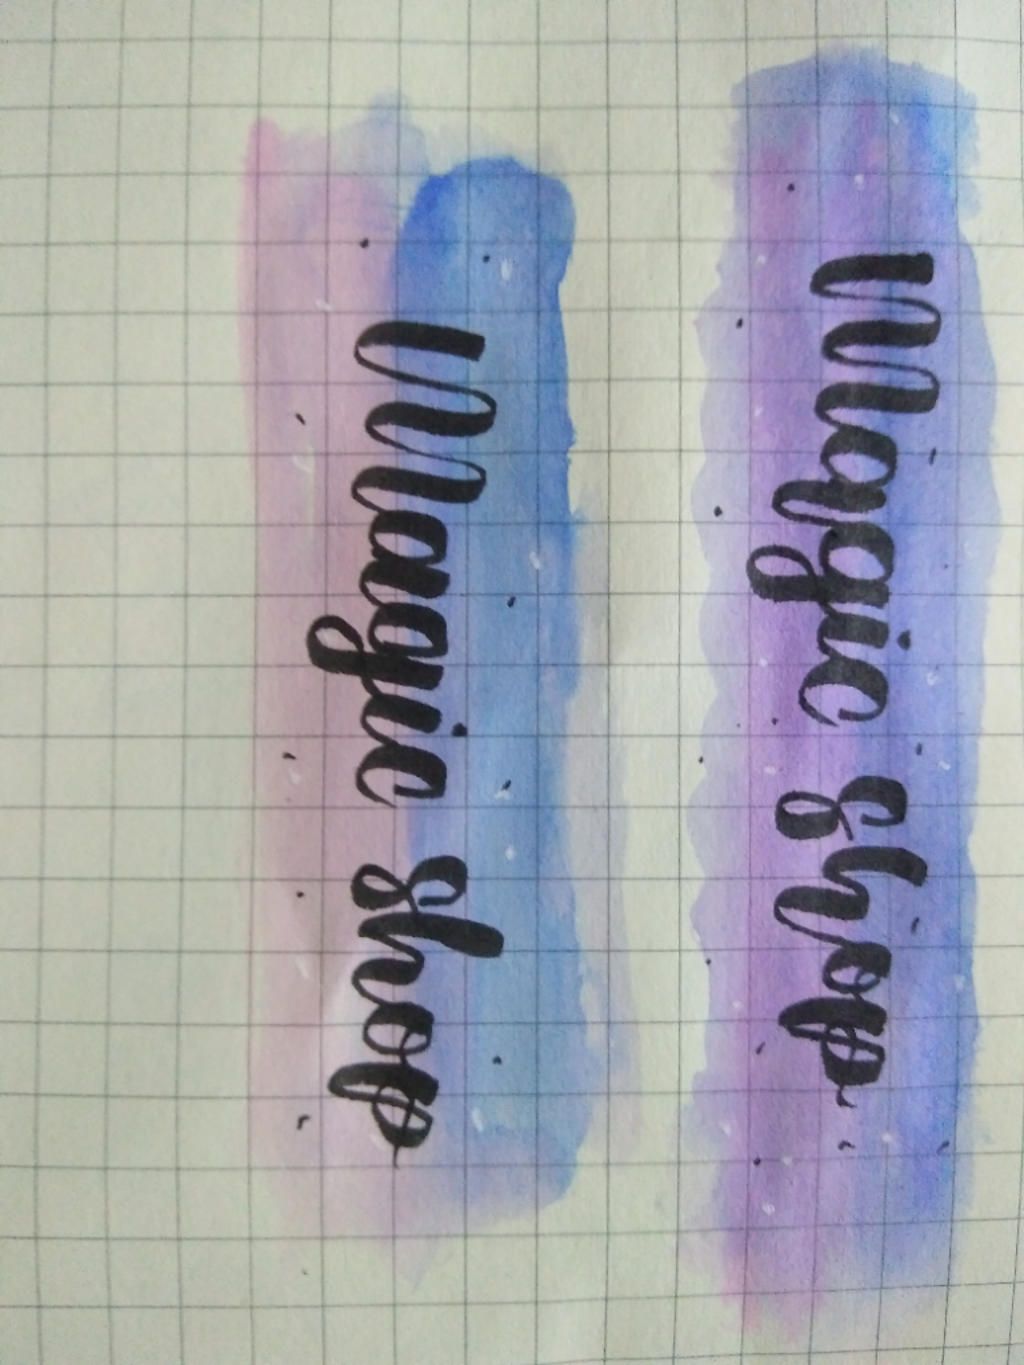 Magic Shop
Magic Shop